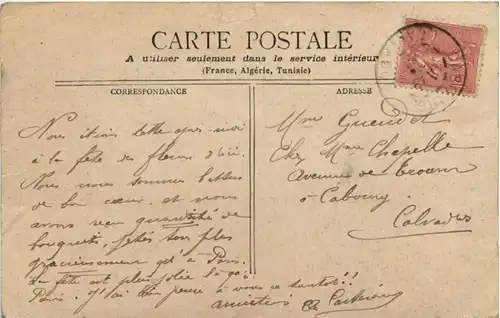 CARTE POSTALE
A utiliser seulement dans le service intérieur
(France, Algérie, Tunisie)
CORRESPONDANCE
Nous étions cette après-midi
à la fête des fleurs d'ici.
Nous nous sommes battus
de bon cœur et nous
avons reçu quantité de
bouquets, jetés tous plus
gracieusement qu'à Paris.
La fête est plus jolie qu'à
Paris. J'ai bien pensé à vous ce tantôt!!
amitiés
ADRESSE
Mme
Chez Mme Chapelle
Avenue de Troarn
à Cabourg
Calvados